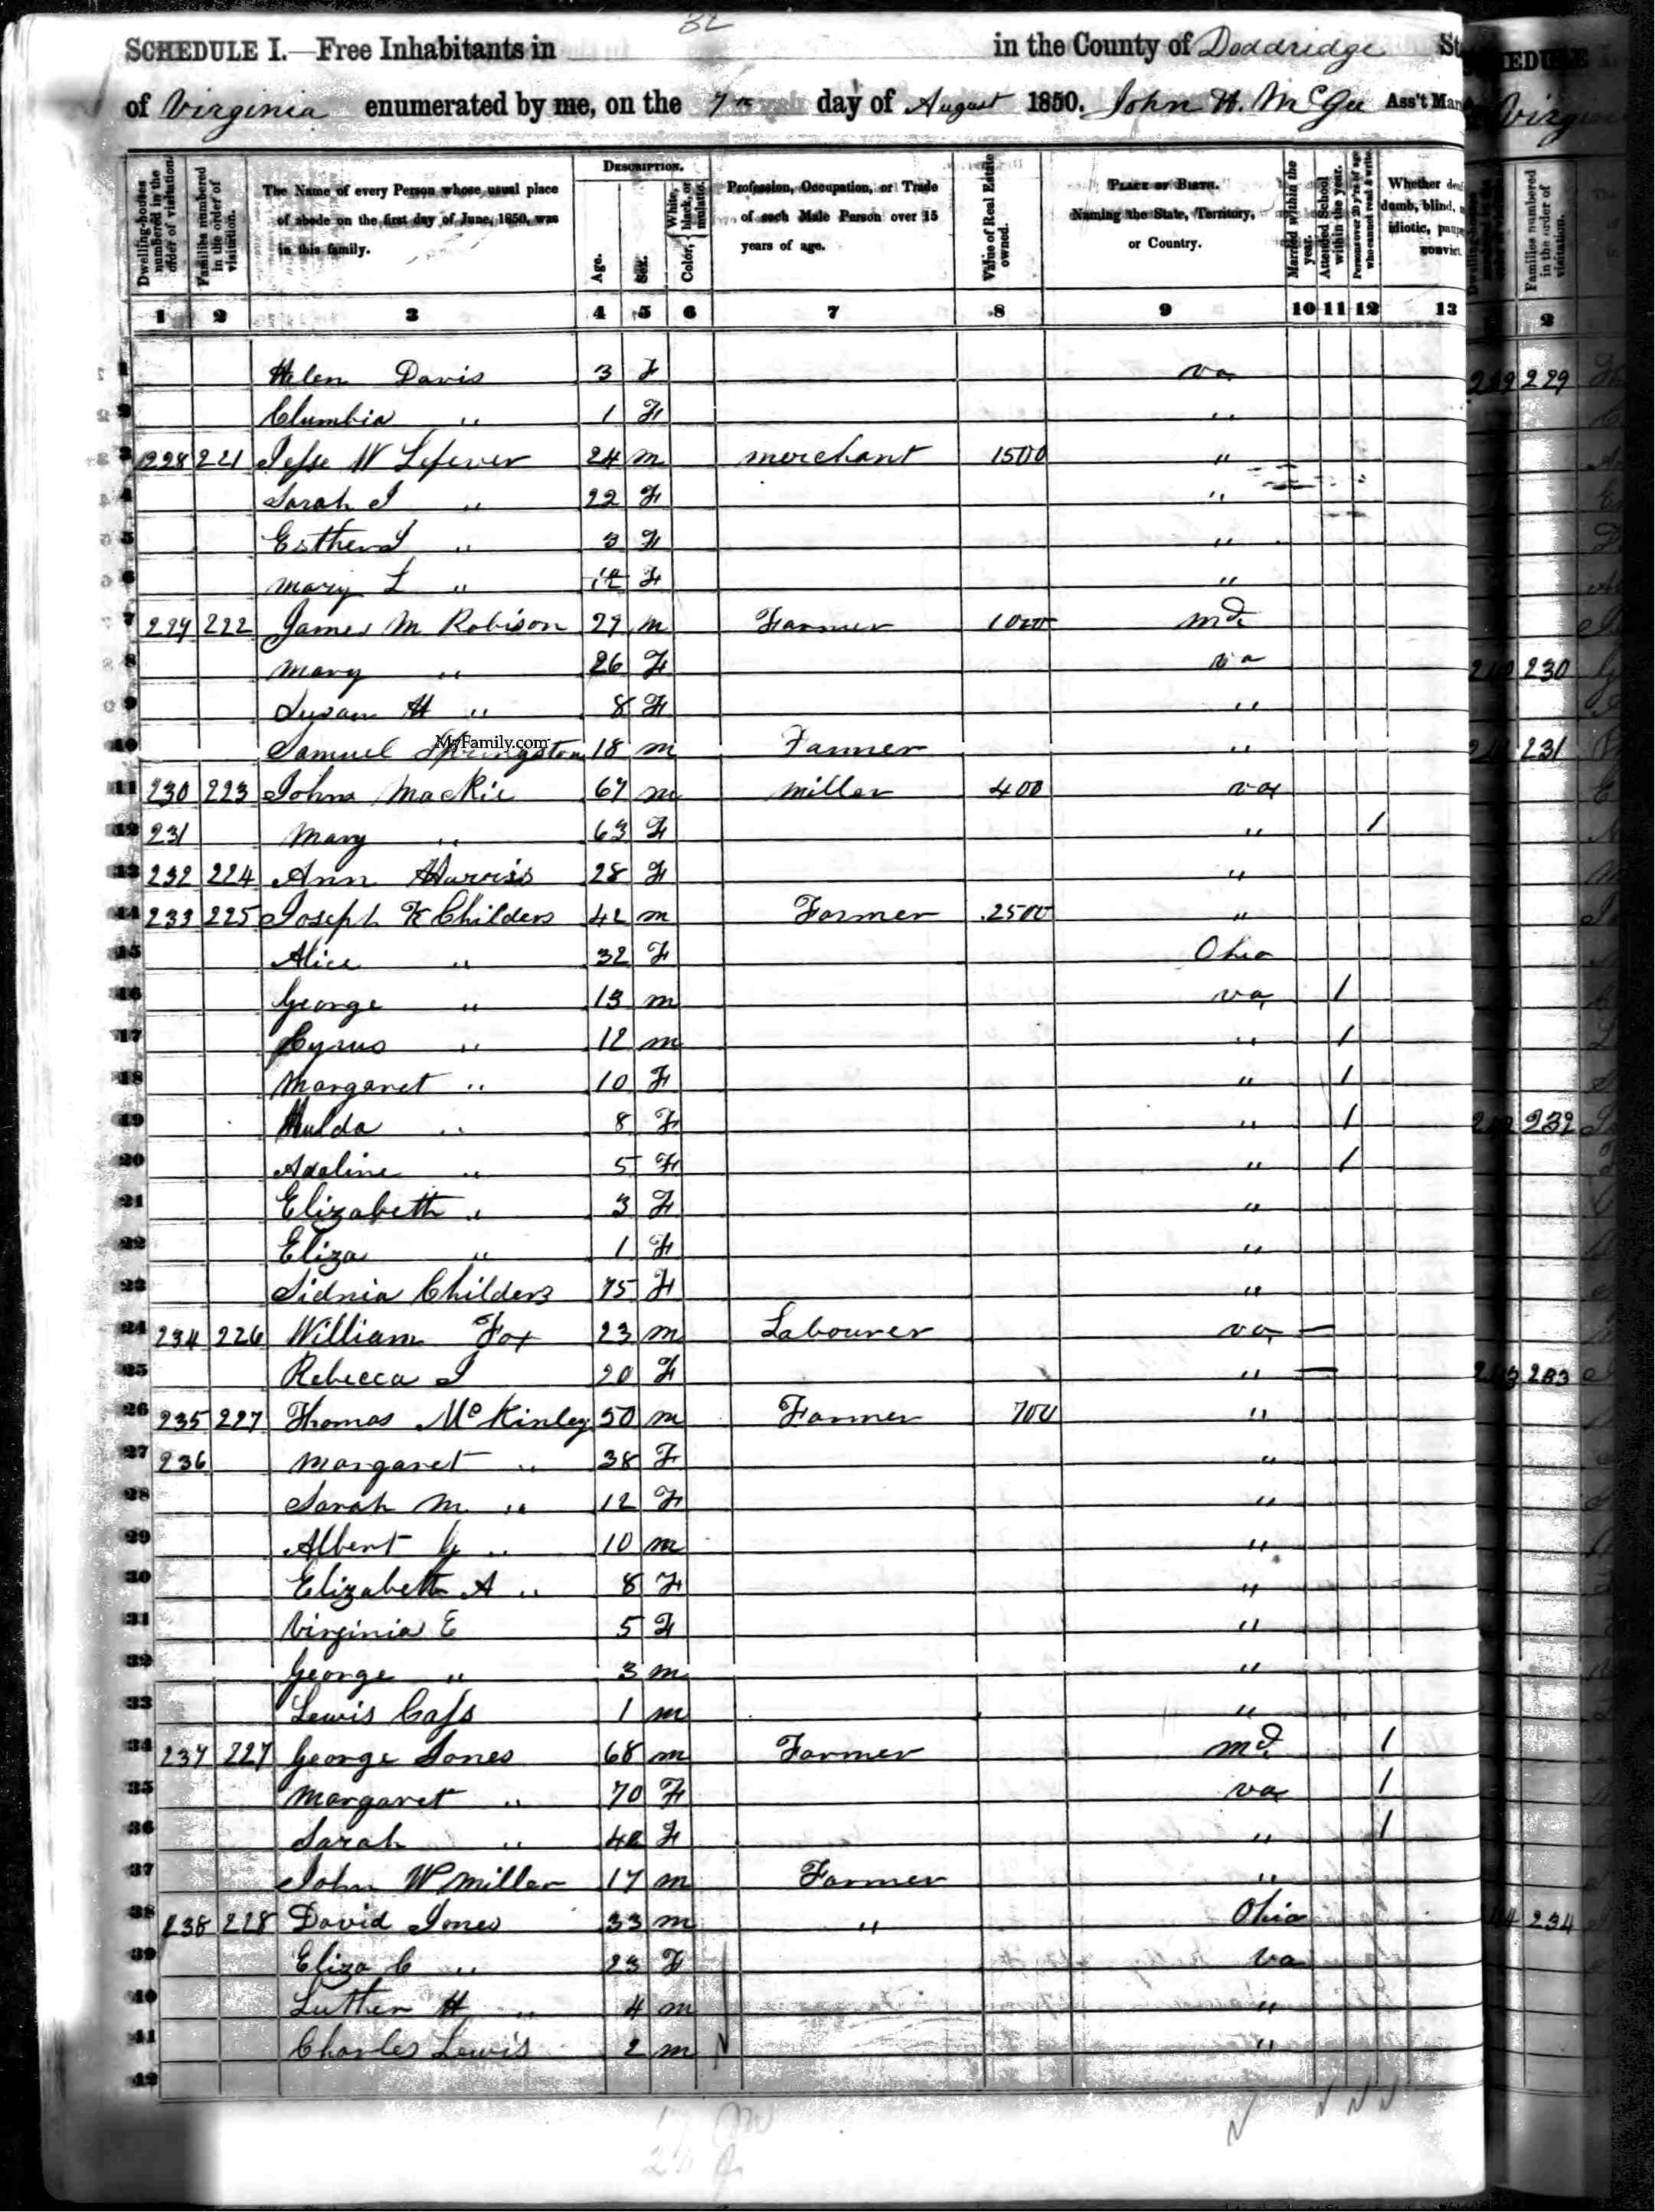 32
SCHEDULE I.—Free Inhabitants in in the County of Doddridge
of Virginia enumerated by me, on the 7th day of August 1850. John H. McGee Ass't Mar
Dwelling-houses numbered in the order of visitation.
Families numbered in the order of visitation.
The Name of every Person whose usual place of abode on the first day of June, 1850, was in this family.
DESCRIPTION.
Age.
Sex.
Color, White, black, or mulatto.
Profession, Occupation, or Trade of each Male Person over 15 years of age.
Value of Real Estate owned.
PLACE OF BIRTH. Naming the State, Territory, or Country.
Married within the year.
Attended School within the year.
Persons over 20 y'rs of age who cannot read & write.
Whether deaf dumb, blind, idiotic, convict.
1 2 3 4 5 6 7 8 9 10 11 12 13
1 Helen Davis 3 F va
2 Clumbia " 1 F "
3 228 221 Jesse W Lefever 24 m merchant 1500 "
4 Sarah J " 22 F "
5 Esther " 3 F "
6 Mary L " F "
7 229 222 James M Robison 29 m Farmer 1000 md
8 Mary " 26 F va
9 Susan H " 8 F "
10 Samuel Springston 18 m Farmer "
MyFamily.com
11 230 223 John Mackie 67 m miller 400 va
12 231 Mary " 63 F " 1
13 232 224 Ann Harriss 28 F "
14 233 225 Joseph F Childers 42 m Farmer 2500 "
15 Alice " 32 F Ohio
16 George " 13 m va 1
17 Cyrus " 12 m " 1
18 Margaret " 10 F " 1
19 Hulda " 8 F " 1
20 Adaline " 5 F " 1
21 Elizabeth " 3 F "
22 Eliza " 1 F "
23 Sidnia Childers 75 F "
24 234 226 William Fox 23 m Labourer va —
25 Rebecca J 20 F " —
26 235 227 Thomas McKinley 50 m Farmer 700 "
27 236 Margaret " 38 F "
28 Sarah M " 12 F "
29 Albert G " 10 m "
30 Elizabeth A " 8 F "
31 Virginia E 5 F "
32 George " 3 m "
33 Lewis Cass 1 m "
34 237 227 George Jones 68 m Farmer md 1
35 Margaret " 70 F va 1
36 Sarah " F " 1
37 John W Miller 17 m Farmer "
38 238 228 David Jones 33 m " Ohio
39 Eliza C " 23 F va
40 Luther H " 4 m "
41 Charles Lewis 2 m "
42
Families numbered in the order of visitation.
2
229
230
231
232
233
234